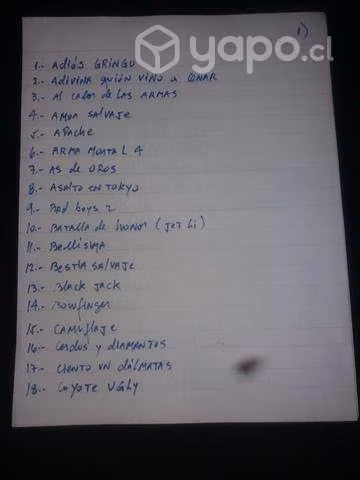 yapo.cl
1)
1.- Adiós GRINGO
2.- Adivina quién vino a cenar
3.- Al calor de las ARMAS
4.- Amor salvaje
5.- Apache
6.- ARMA MORTAL 4
7.- AS de OROS
8.- Asalto en Tokyo
9.- Bad boys 2
10.- Batalla de honor (Jet Li)
11.- Bellísima
12.- Bestia salvaje
13.- Black Jack
14.- Bowfinger
15.- Camuflaje
16.- Cerdos y diamantes
17.- Ciento un dálmatas
18.- Coyote Ugly